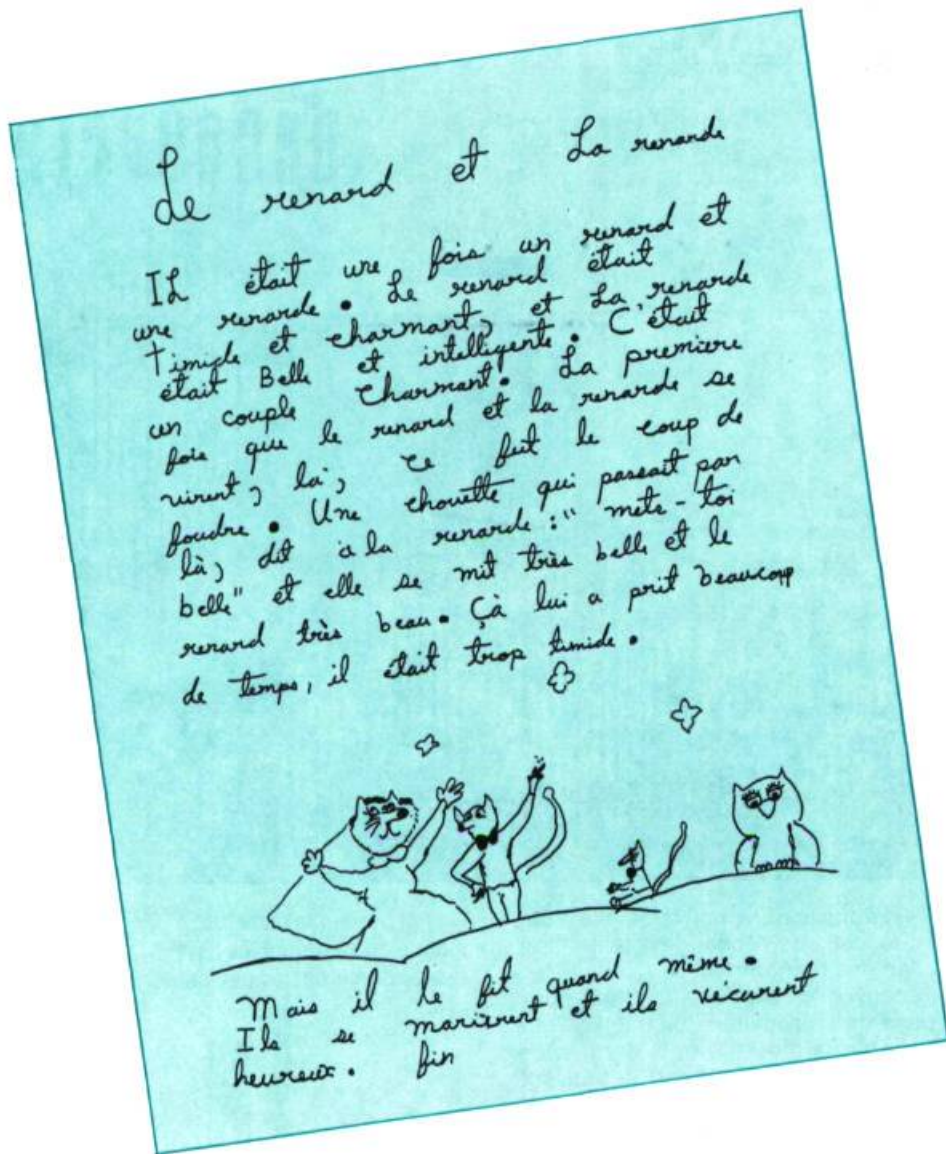 Le renard et La renarde
IL était une fois un renard et
une renarde. Le renard était
timide et charmant, et La renarde
était Belle et intelligente. C'était
un couple charmant. La premiere
fois que le renard et la renarde se
virent, là, ce fut le coup de
foudre. Une chouette qui passait par
là, dit à la renarde : " mets-toi
belle" et elle se mit très belle et le
renard très beau. Çà lui a prit beaucoup
de temps, il était trop timide.
Mais il le fit quand même.
Ils se marièrent et ils vécurent
heureux. fin